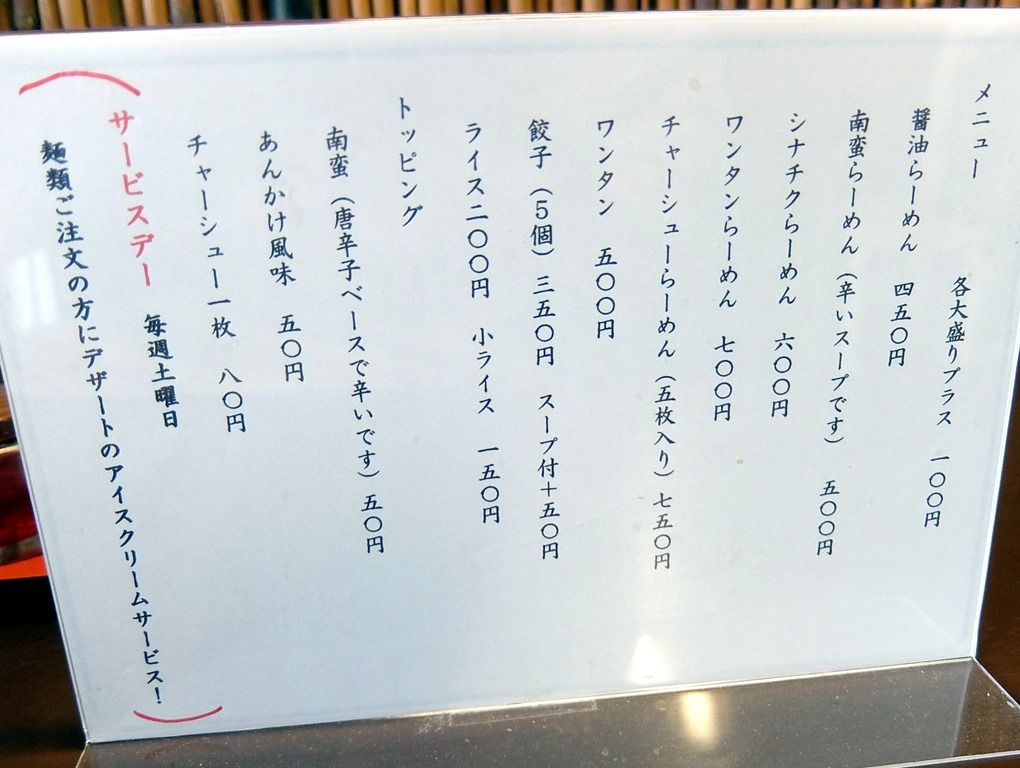 メニュー
各大盛りプラス 一〇〇円
醤油らーめん 四五〇円
南蛮らーめん（辛いスープです） 五〇〇円
シナチクらーめん 六〇〇円
ワンタンらーめん 七〇〇円
チャーシューらーめん（五枚入り）七五〇円
ワンタン 五〇〇円
餃子（5個）三五〇円 スープ付＋五〇円
ライス二〇〇円 小ライス 一五〇円
トッピング
南蛮（唐辛子ベースで辛いです）五〇円
あんかけ風味 五〇円
チャーシュー一枚 八〇円
（サービスデー 毎週土曜日
麺類ご注文の方にデザートのアイスクリームサービス！）